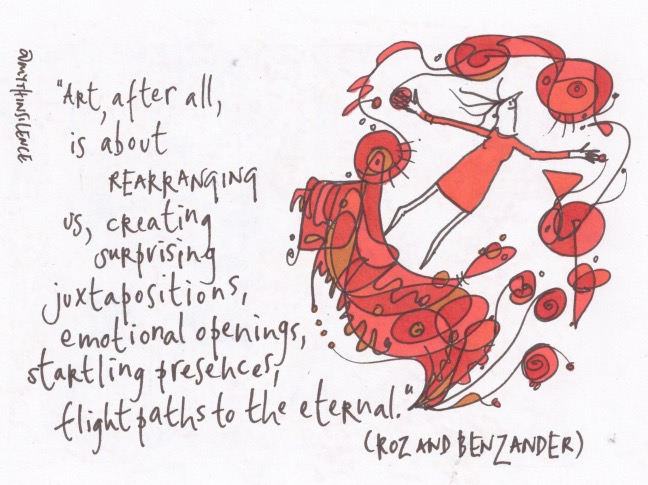 @MYTHINSILENCE
"ART, after all,
is about
REARRANGING
us, creating
surprising
juxtapositions,
emotional openings,
startling presences,
flight paths to the eternal."
(ROZ AND BEN ZANDER)